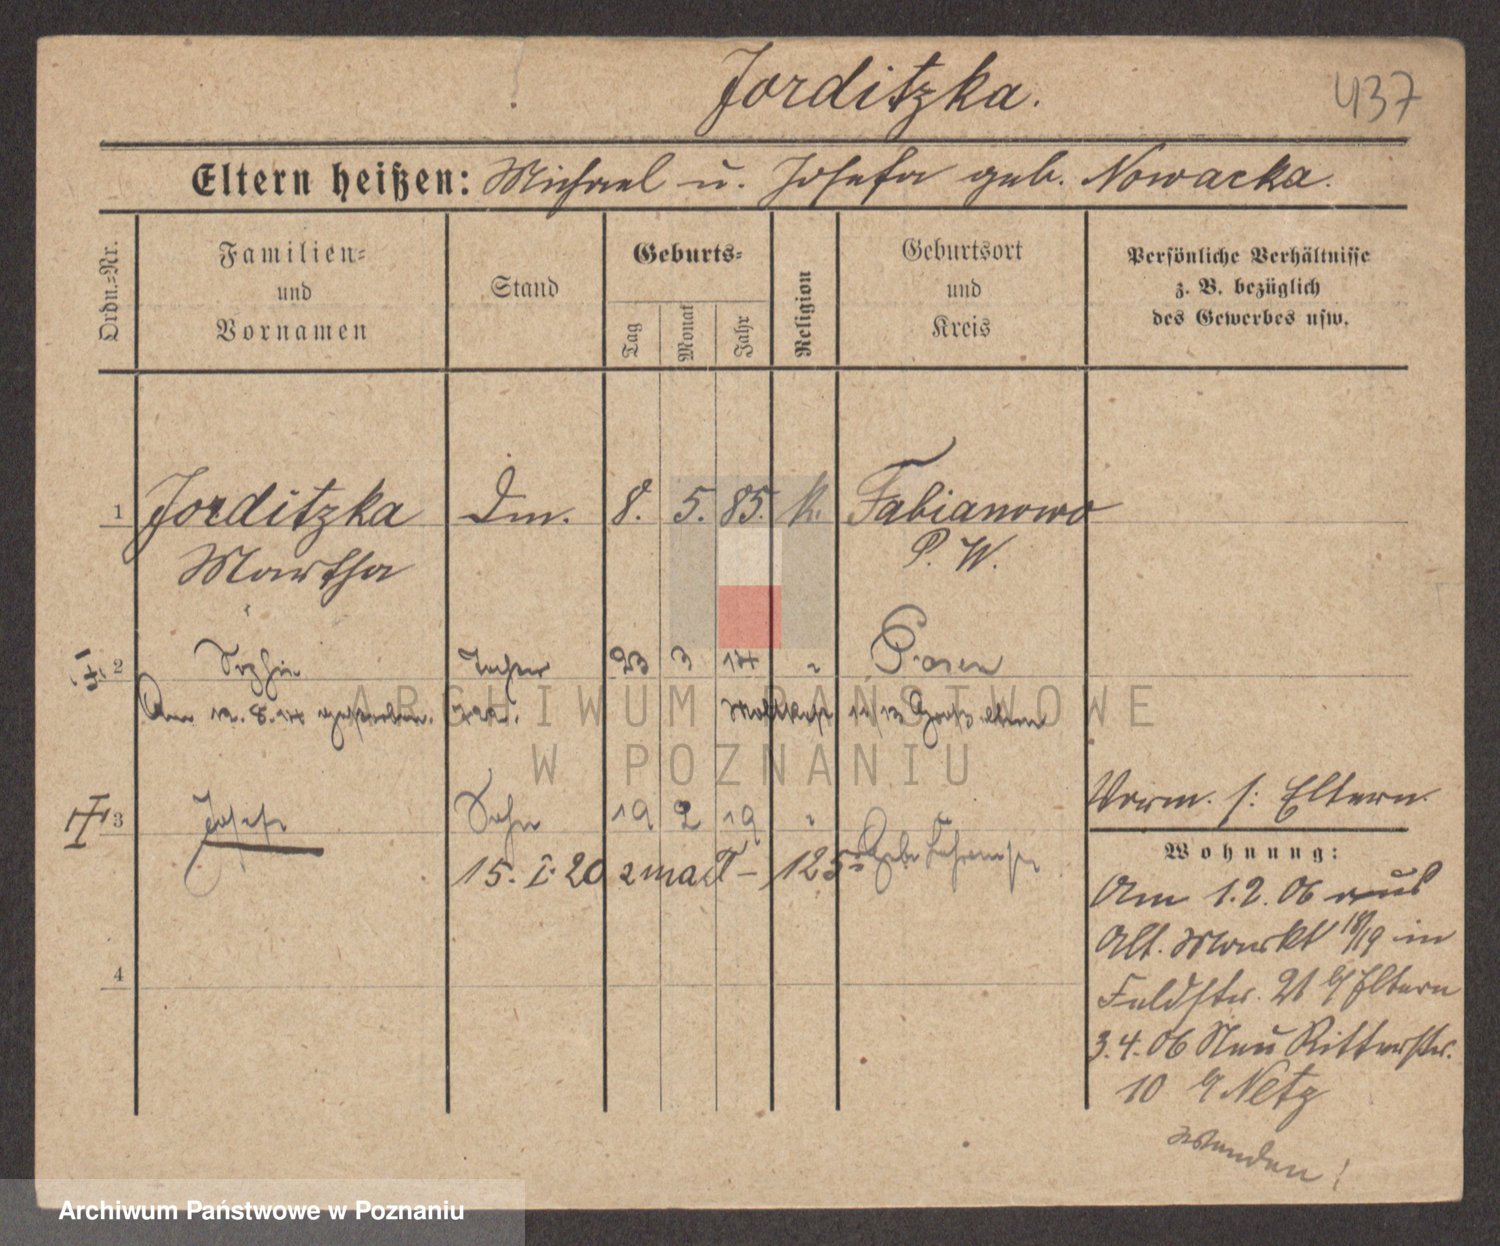 Jorditzka.
437
Eltern heißen: Michael u. Josefa geb. Nowacka.
Ordn.-Nr.
Familien-
und
Vornamen
Stand
Geburts-
Tag
Monat
Jahr
Religion
Geburtsort
und
Kreis
Persönliche Verhältnisse
z. B. bezüglich
des Gewerbes usw.
1 Jorditzka Dm. 8. 5. 85. k. Fabianowo
Martha P. W.
2 Sophie Tochter 23 3 14 " Posen
Am 12. 8. 14 gestorben.
3 Josef Sohn 19 2 19 "
15. I. 20
4
Vorm. s: Eltern.
Wohnung:
Am 1.2.06 aus
Alt. Markt 18/19 in
Feldstr. 21 b/ Eltern
3.4.06 Neu Ritterstr.
10 b/ Netz
wenden!
ARCHIWUM PAŃSTWOWE
W POZNANIU
Archiwum Państwowe w Poznaniu